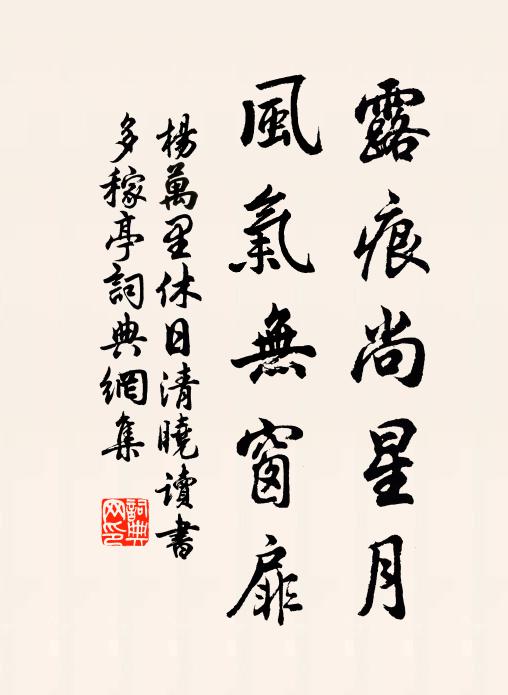 露痕尚星月
風氣無窗扉
楊萬里休日清曉讀書
多稼亭詞典網集
詞典
网印